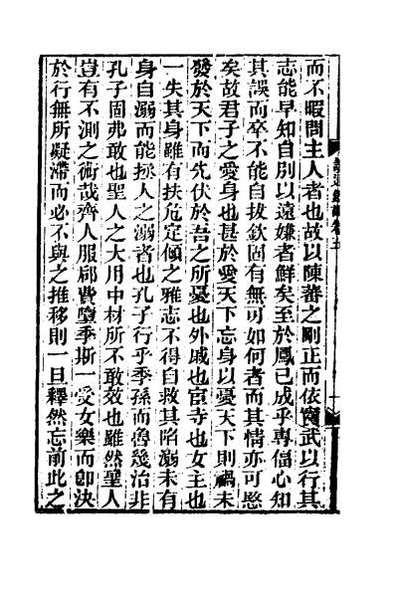 而不暇問主人者也故以陳蕃之剛正而依竇武以行其
志能早知自別以遠嫌者鮮矣至於鳳已成乎專偪心知
其誤而卒不能自拔欽固有無可如何者而其情亦可愍
矣故君子之愛身也甚於愛天下忘身以憂天下則禍未
發於天下而先伏於吾之所憂也外戚也宦寺也女主也
一失其身雖有扶危定傾之雅志不得自救其陷溺未有
身自溺而能拯人之溺者也孔子行乎季孫而魯幾治非
孔子固弗敢也聖人之大用中材所不敢效也雖然聖人
豈有不測之術哉齊人服郈費墮季斯一受女樂而即決
於行無所疑滯而必不與之推移則一旦釋然忘前此之